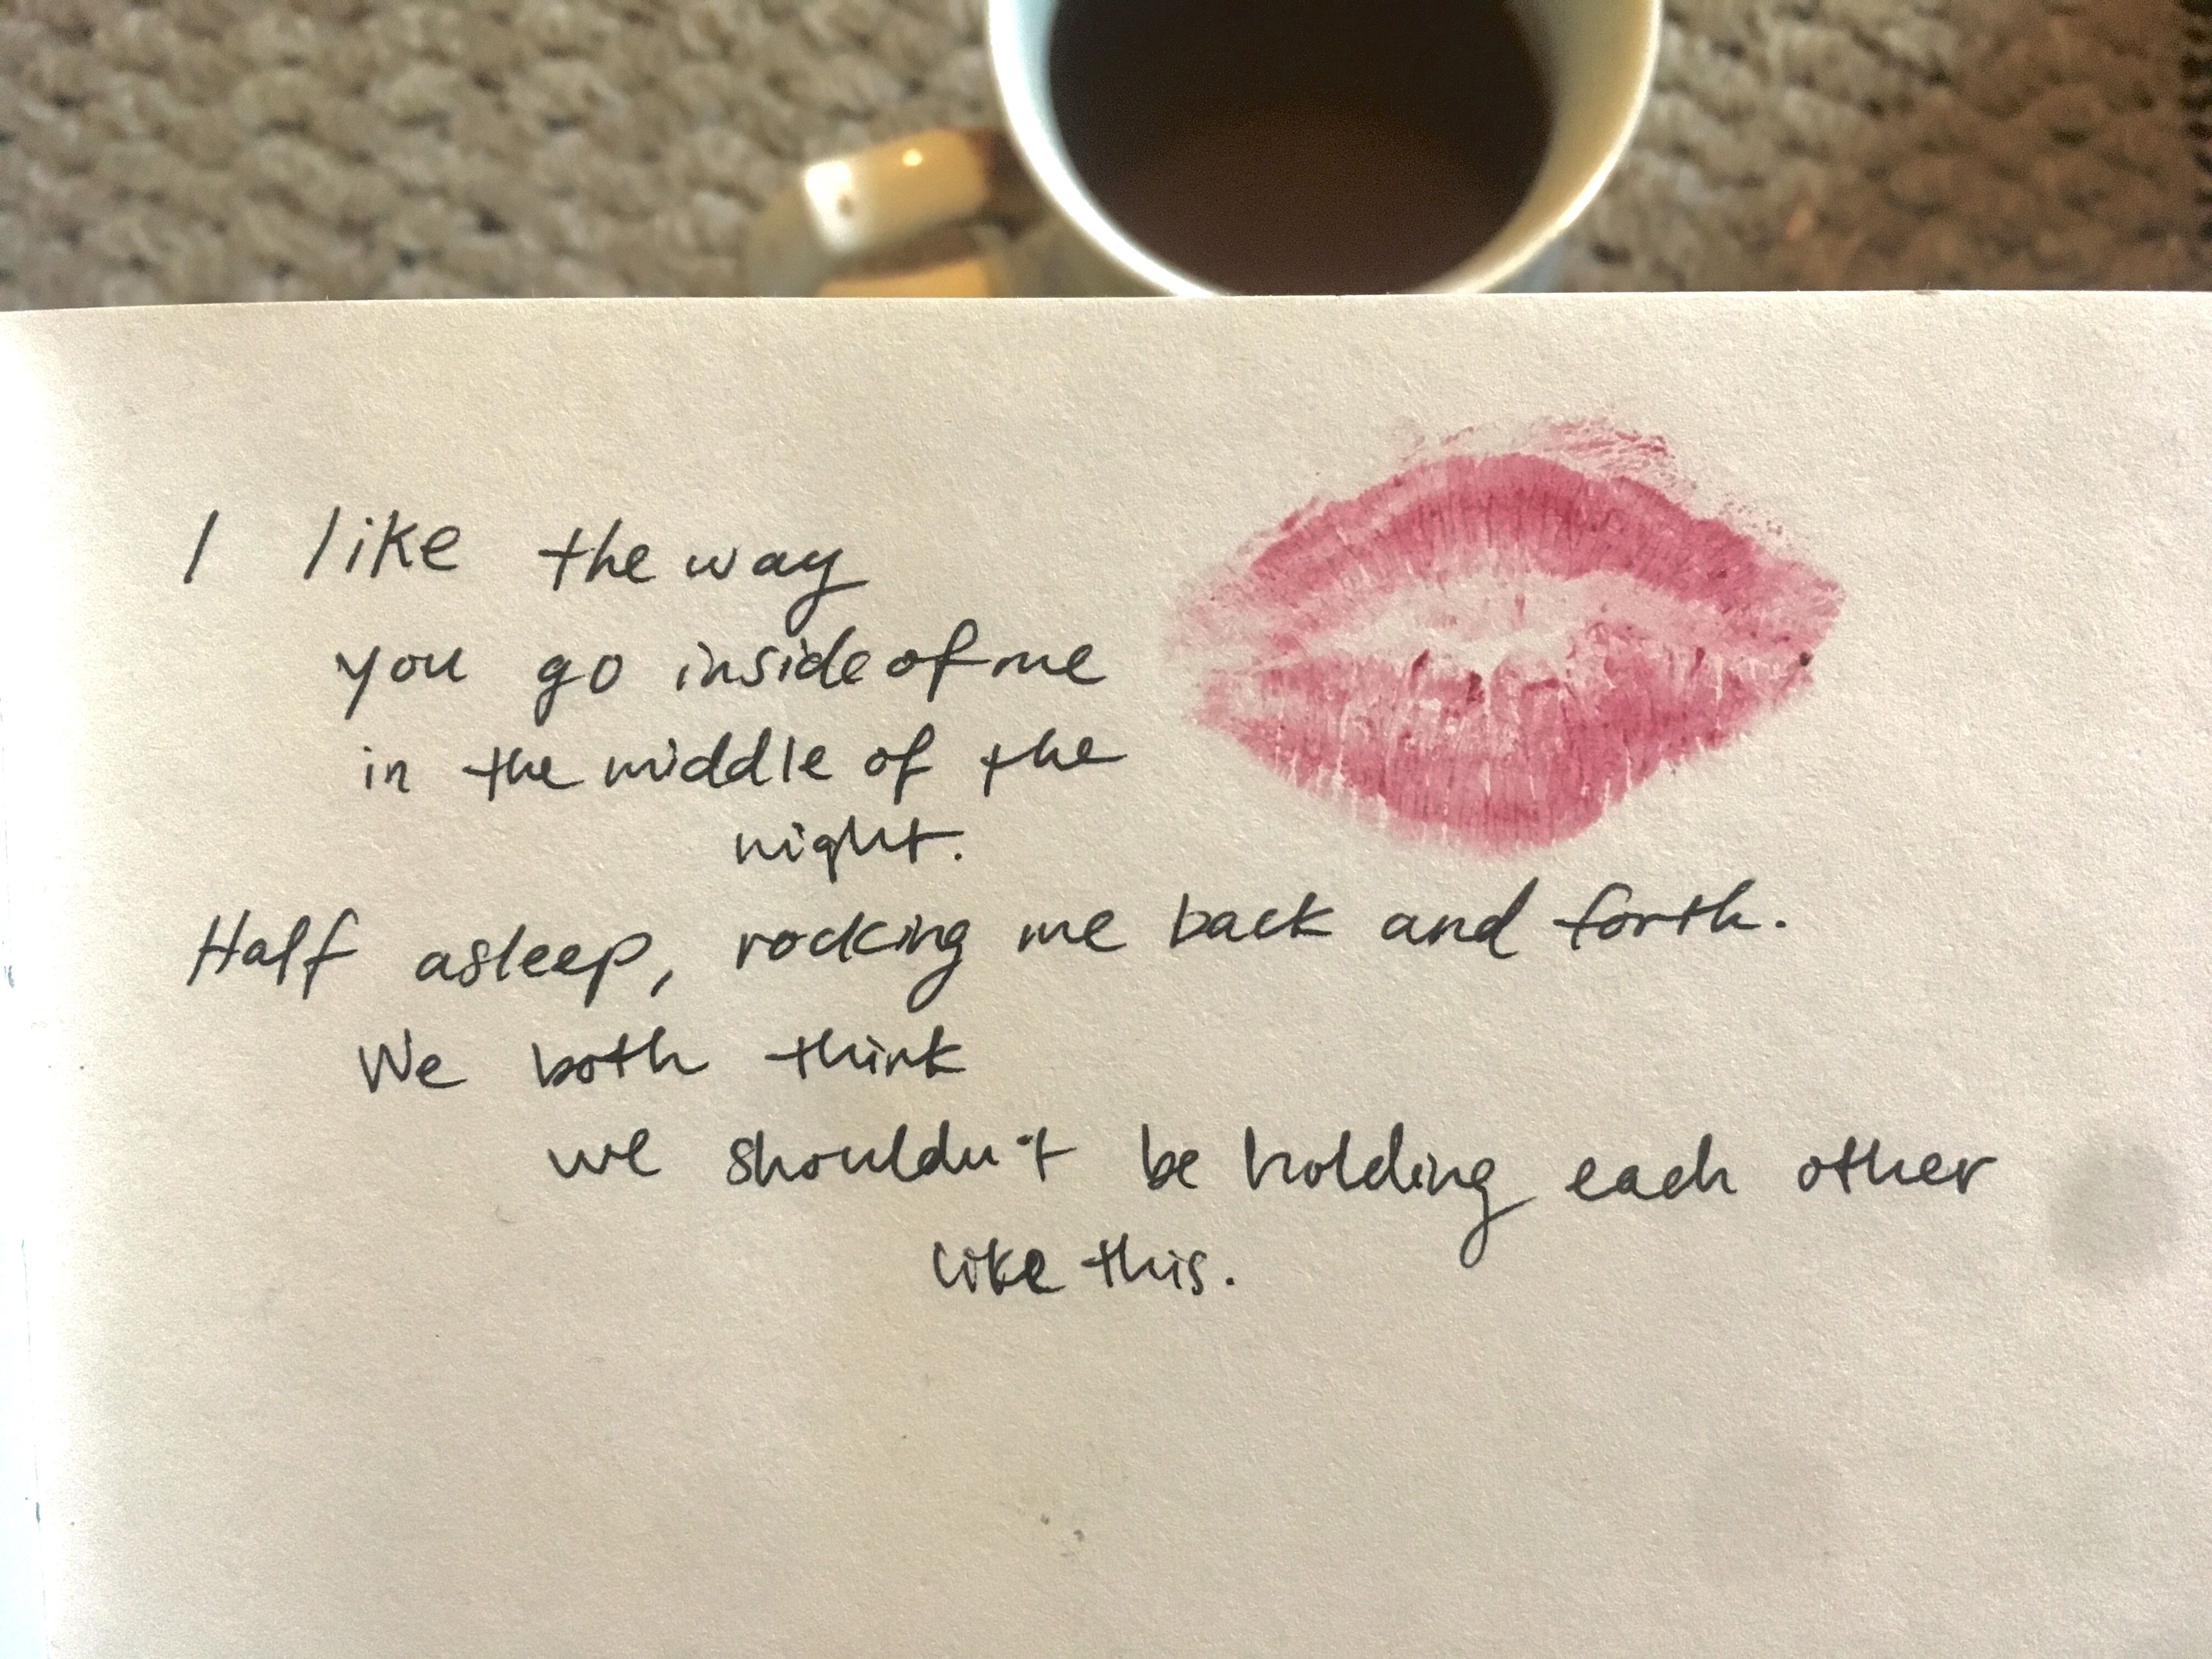 I like the way
you go inside of me
in the middle of the
night.
Half asleep, rocking me back and forth.
We both think
we shouldn't be holding each other
like this.